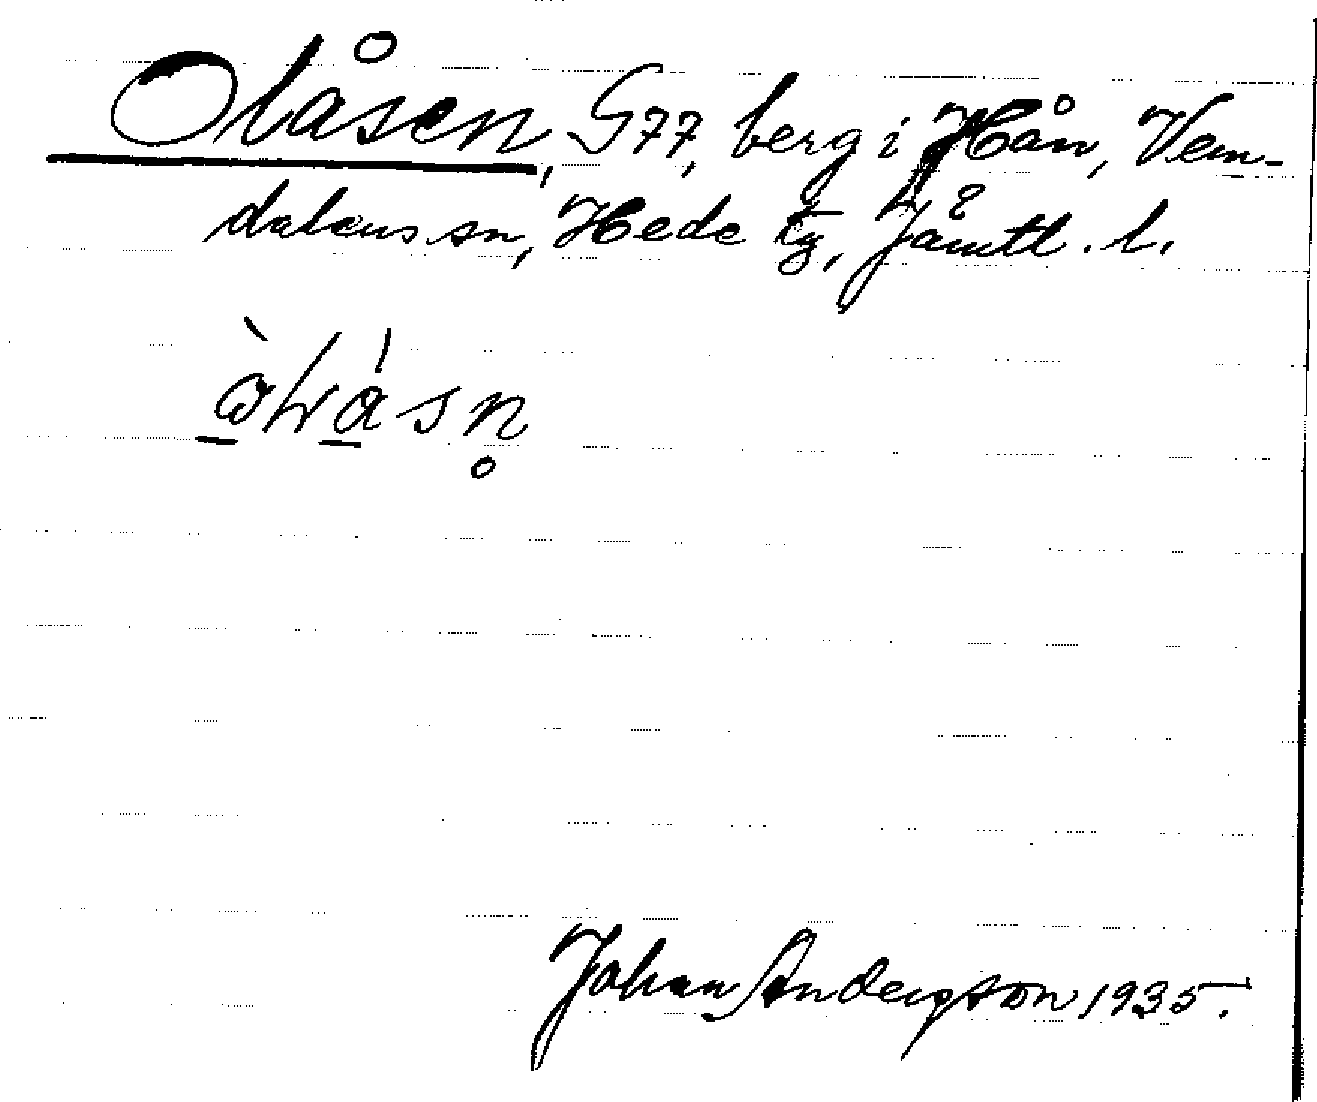 Olåsen, G77, berg i Hån, Vem-
dalens sn, Hede tg, Jämtl. l.
Johan Anderson 1935.